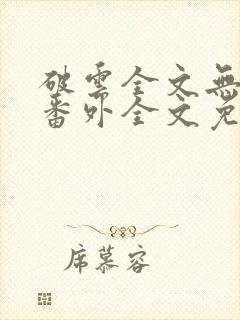 破雲全文無
番外全文免
席慕容